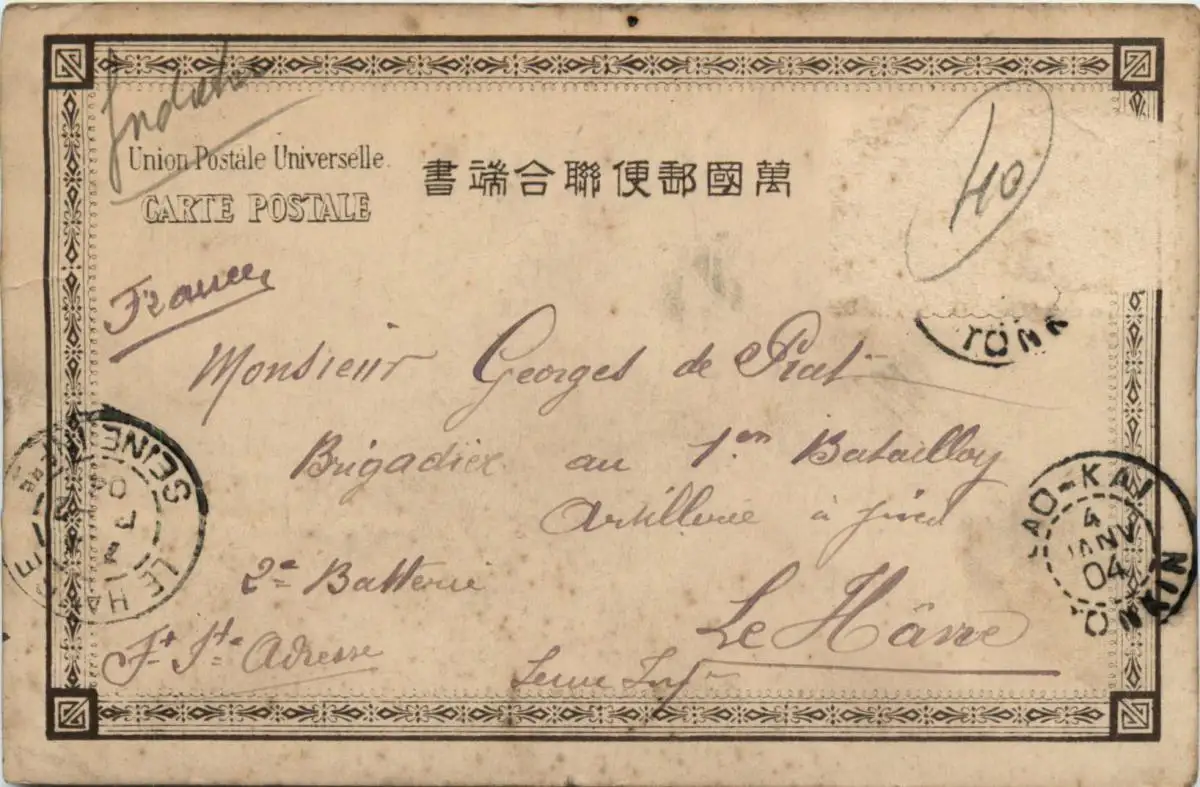 Union Postale Universelle
CARTE POSTALE
萬國郵便聯合端書
40
France
TONK
Monsieur Georges de Prat
Brigadier au 1er Bataillon
Artillerie à pied
2e Batterie
Ft Ste Adresse
Le Hâvre
Seine Infre
LAO-KAI
4
JANV
04
TONKIN
LE HA
SEINE